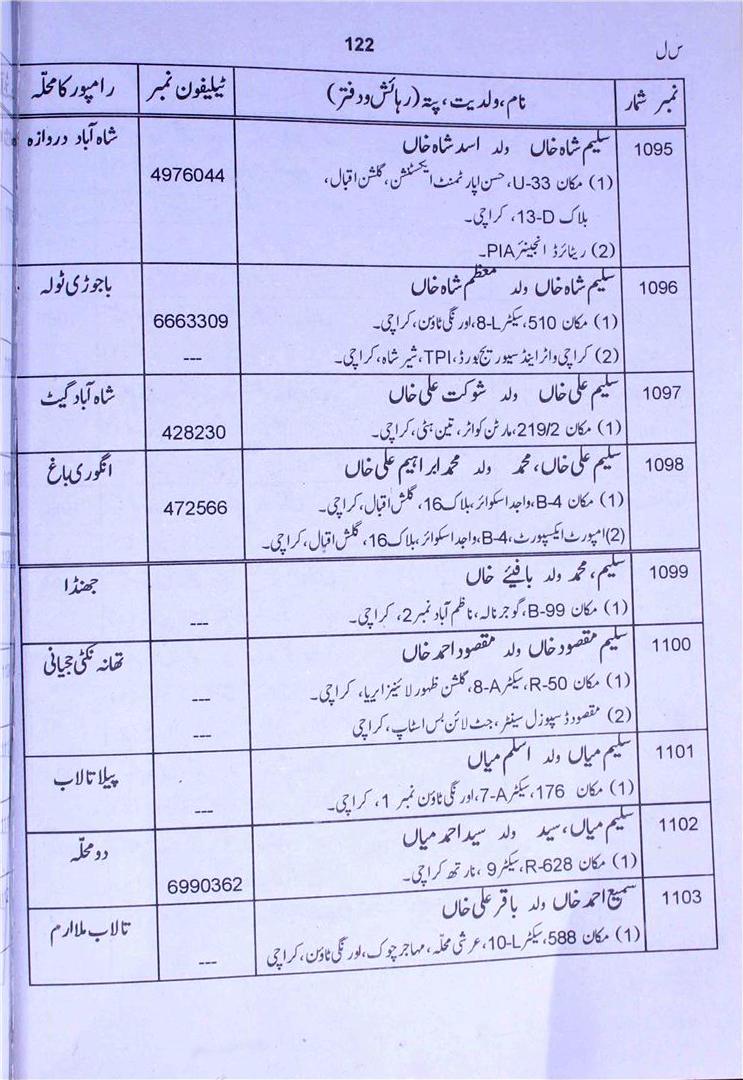 س ل
122
نمبر شمار نام، ولدیت، پتہ (رہائش و دفتر) ٹیلیفون نمبر رامپور کا محلّہ
1095 سلیم شاہ خاں ولد اسد شاہ خاں شاہ آباد دروازہ
(1) مکان U-33، حسن اپارٹمنٹ ایکسٹنشن، گلشن اقبال، 4976044
بلاک 13-D، کراچی۔
(2) ریٹائرڈ انجینئر PIA۔
1096 سلیم شاہ خاں ولد معظم شاہ خاں باجوڑی ٹولہ
(1) مکان 510، سیکٹر 8-L، اورنگی ٹاؤن، کراچی۔ 6663309
(2) کراچی واٹر اینڈ سیوریج بورڈ، TPI، شیر شاہ، کراچی۔ ---
1097 سلیم علی خاں ولد شوکت علی خاں شاہ آباد گیٹ
(1) مکان 219/2، مارٹن کواٹر، تین ہٹی، کراچی۔ 428230
1098 سلیم علی خاں، محمد ولد محمد ابراہیم علی خاں انگوری باغ
(1) مکان B-4، واجد اسکوائر، بلاک 16، گلشن اقبال، کراچی۔ 472566
(2) امپورٹ ایکسپورٹ، B-4، واجد اسکوائر، بلاک 16، گلشن اقبال، کراچی۔
1099 سلیم، محمد ولد بافیئے خاں جھنڈا
(1) مکان B-99، گوجر نالہ، ناظم آباد نمبر 2، کراچی۔ ---
1100 سلیم مقصود خاں ولد مقصود احمد خاں تھانہ
(1) مکان R-50، سیکٹر 8-A، گلشن ظہور لائینز ایریا، کراچی۔ ---
(2) مقصود ڈسپوزل سینٹر، جٹ لائن بس اسٹاپ، کراچی ---
1101 سلیم میاں ولد اسلم میاں پیلا تالاب
(1) مکان 176، سیکٹر 7-A، اورنگی ٹاؤن نمبر 1، کراچی۔ ---
1102 سلیم میاں، سید ولد سید احمد میاں دو محلّہ
(1) مکان R-628، سیکٹر 9، نارتھ کراچی۔ 6990362
1103 سمیع احمد خاں ولد باقر علی خاں تالاب ملا ارم
(1) مکان 588، سیکٹر 10-L، عرشی محلّہ، مہاجر چوک، اورنگی ٹاؤن، کراچی ---